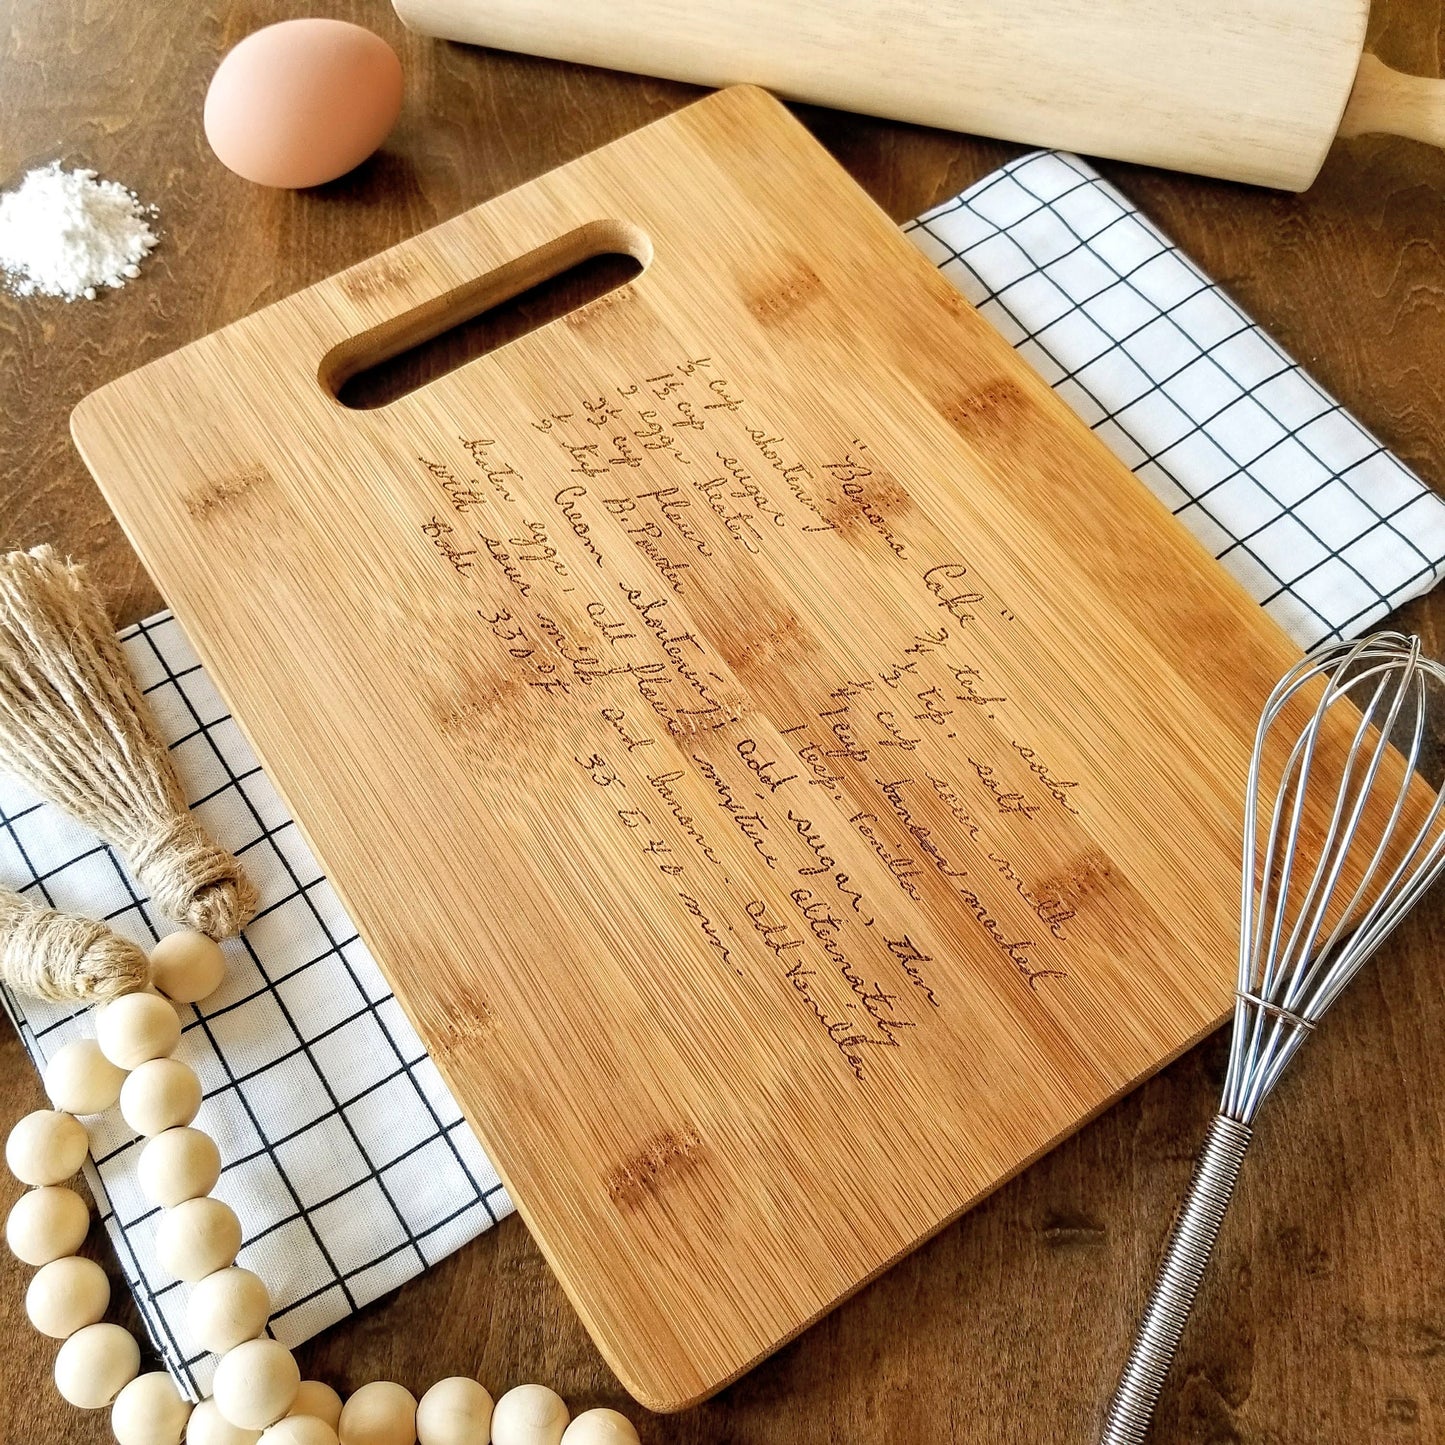 "Banana Cake"
½ cup shortening
1½ cup sugar
2 eggs beaten
2½ cup flour
½ tsp B. Powder
¾ tsp. soda
½ tsp. salt
¼ cup sour milk
1 cup bananas mashed
1 tesp. Vanilla
Cream shortening, add sugar, then
beaten eggs, add flour mixture alternately
with sour milk and banana. add Vanilla
Bake 350° 35 to 40 min.